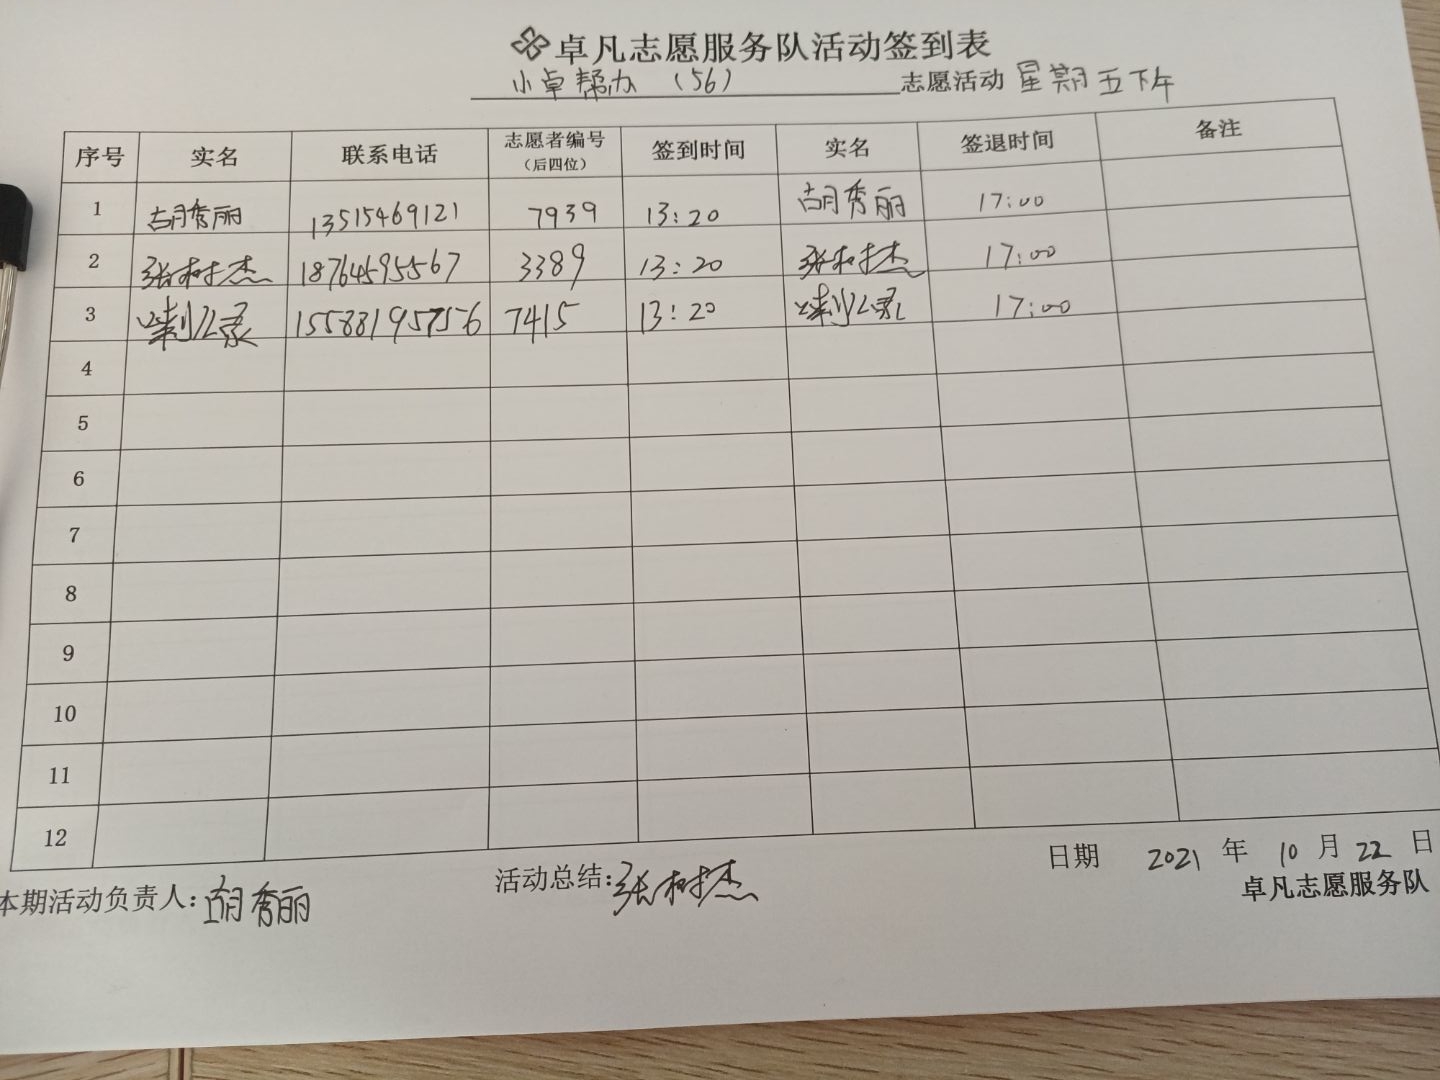 卓凡志愿服务队活动签到表
小卓帮办（56） 志愿活动 星期五下午
序号 实名 联系电话 志愿者编号（后四位） 签到时间 实名 签退时间 备注
1 胡秀丽 13515469121 7939 13:20 胡秀丽 17:00
2 张树杰 18764595567 3389 13:20 张树杰 17:00
3 15588195756 7415 13:20 17:00
4
5
6
7
8
9
10
11
12
本期活动负责人：胡秀丽 活动总结：张树杰 日期 2021 年 10 月 22 日
卓凡志愿服务队